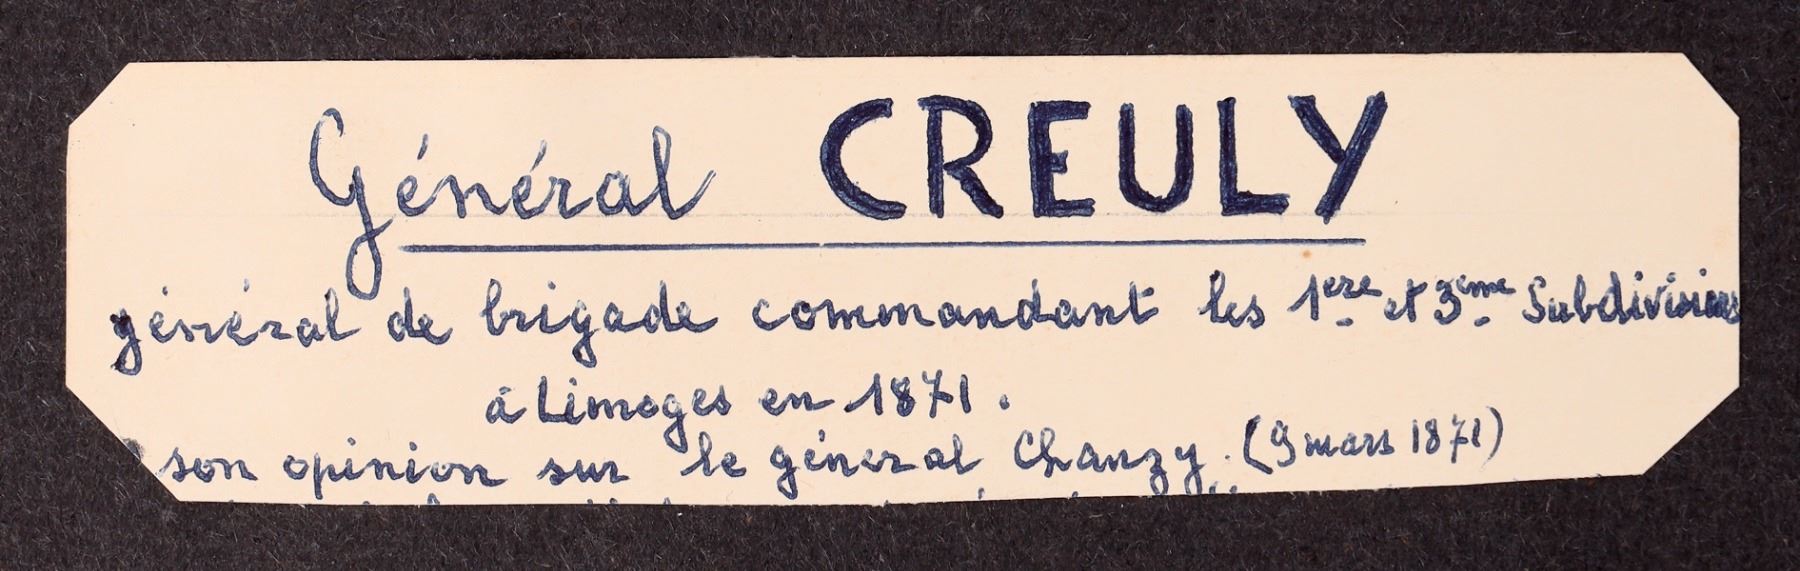 Général CREULY
général de brigade commandant les 1ere et 3eme Subdivisions
à Limoges en 1871.
son opinion sur le général Chanzy. (9 mars 1871)